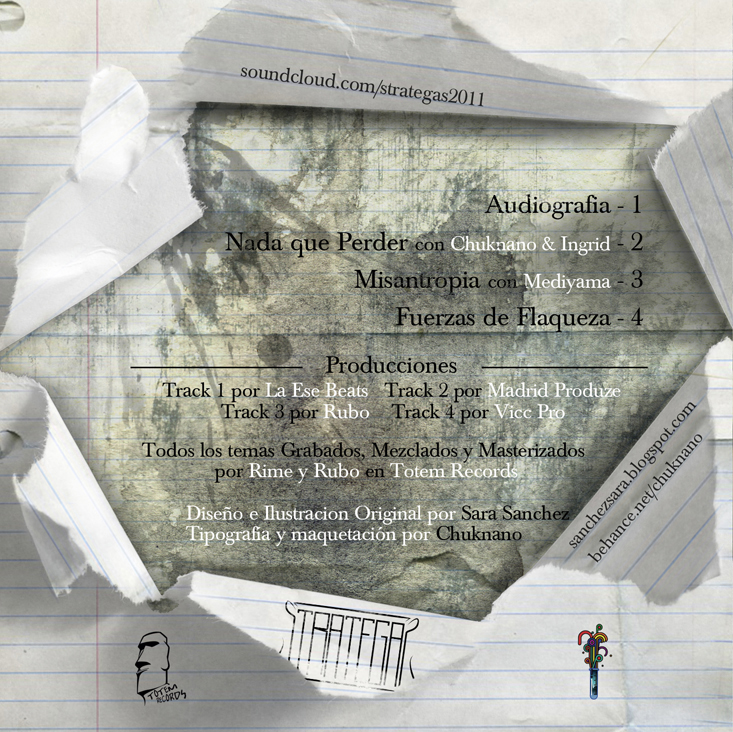 soundcloud.com/strategas2011
Audiografia - 1
Nada que Perder con Chuknano & Ingrid - 2
Misantropia con Mediyama - 3
Fuerzas de Flaqueza - 4
Producciones
Track 1 por La Ese Beats Track 2 por Madrid Produze
Track 3 por Rubo Track 4 por Vicc Pro
Todos los temas Grabados, Mezclados y Masterizados
por Rime y Rubo en Totem Records
Diseño e Ilustracion Original por Sara Sanchez
Tipografía y maquetación por Chuknano
sanchezsara.blogspot.com
behance.net/chuknano
TRATEGA
TOTEM
RECORDS